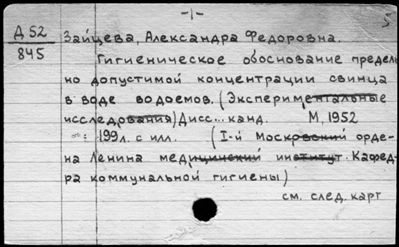 -1- 5
Д 52 Зайцева, Александра Федоровна.
845 Гигиеническое обоснование предель
но допустимой концентрации свинца
в воде водоемов. (Экспериментальные
исследования) Дисс... канд. М, 1952
199л. с илл. (I-й Московский орде-
на Ленина медицинский институт. Кафед-
ра коммунальной гигиены)
см. след. карт